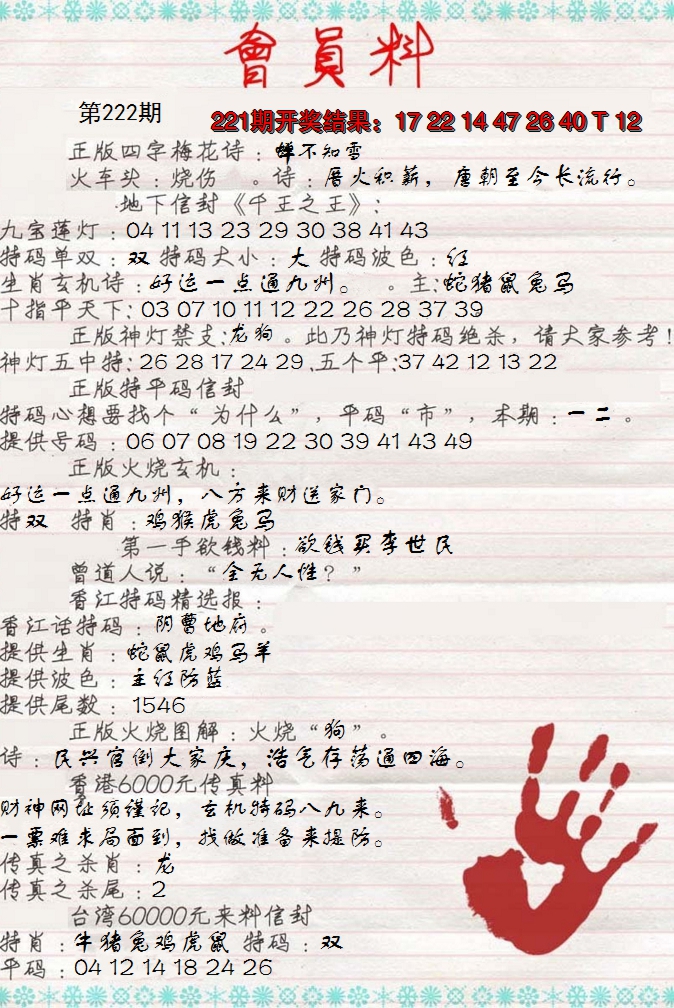 會員料
第222期
221期开奖结果：17 22 14 47 26 40 T 12
正版四字梅花诗：蝉不知雪
火车头：烧伤 。诗：厝火积薪，唐朝至今长流行。
地下信封《千王之王》：
九宝莲灯：04 11 13 23 29 30 38 41 43
特码单双：双 特码大小：大 特码波色：红
生肖玄机诗：好运一点通九州。 。主:蛇猪鼠兔马
十指平天下: 03 07 10 11 12 22 26 28 37 39
正版神灯禁支:龙狗。此乃神灯特码绝杀，请大家参考!
神灯五中特:26 28 17 24 29 .五个平:37 42 12 13 22
正版特平码信封
特码心想要找个“为什么”，平码“市”，本期：一二。
提供号码：06 07 08 19 22 30 39 41 43 49
正版火烧玄机：
好运一点通九州，八方来财送家门。
特双 特肖：鸡猴虎兔马
第一手欲钱料：欲钱买李世民
曾道人说：“全无人性？”
香江特码精选报：
香江话特码：阴曹地府。
提供生肖：蛇鼠虎鸡马羊
提供波色：主红防蓝
提供尾数：1546
正版火烧图解：火烧“狗”。
诗：民兴官倒大家庆，浩气存荡通四海。
香港6000元传真料
财神网址须谨记，玄机特码八九来。
一票难求局面到，找做准备来提防。
传真之杀肖：龙
传真之杀尾：2
台湾60000元来料信封
特肖：牛猪兔鸡虎鼠 特码：双
平码：04 12 14 18 24 26